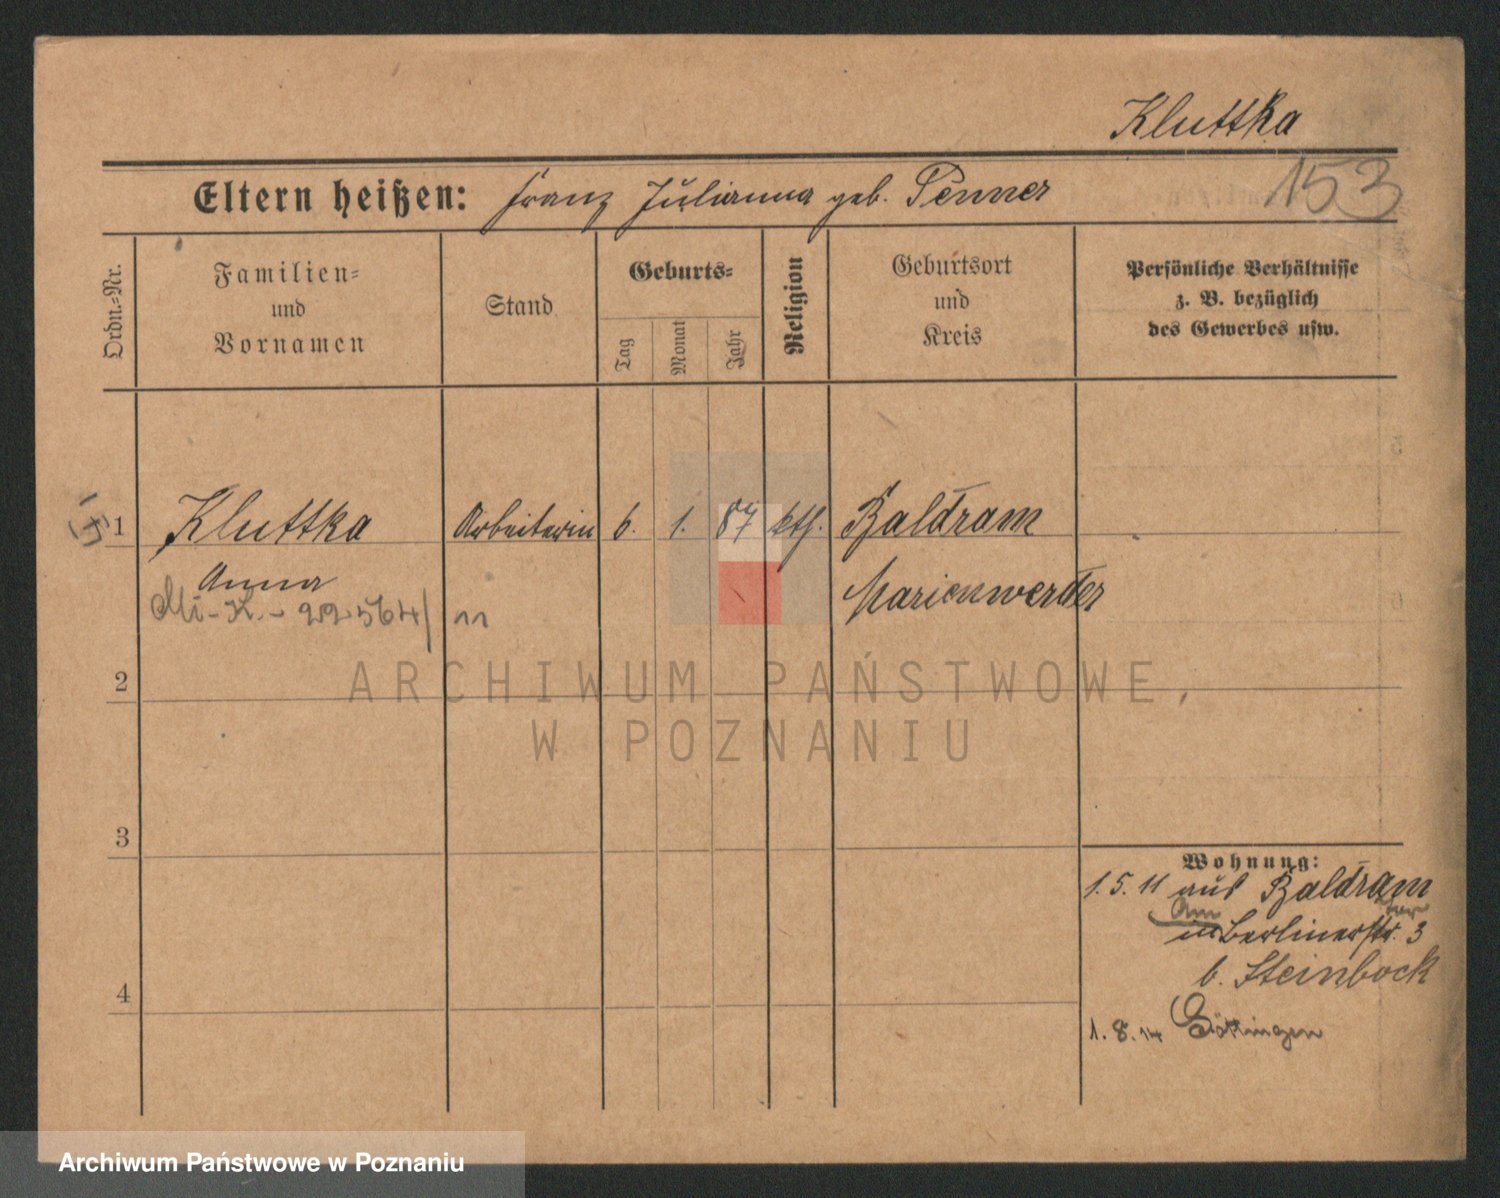 Kluttka
153
Eltern heißen: Franz Julianna geb. Penner
Ordn.=Nr.
Familien=
und
Vornamen
Stand
Geburts=
Tag
Monat
Jahr
Religion
Geburtsort
und
Kreis
Persönliche Verhältnisse
z. B. bezüglich
des Gewerbes usw.
1 Kluttka Arbeiterin 6. 1. 87 kth. Baldram
Anna Marienwerder
22564/11
2
3
4
Wohnung:
1.5.11 aus Baldram
in Berlinerstr. 3
b. Steinbock
1.8.14 Göttingen
ARCHIWUM PAŃSTWOWE,
W POZNANIU
Archiwum Państwowe w Poznaniu